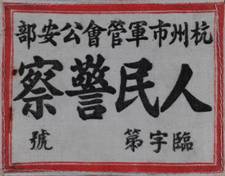 杭州市軍管會公安部
人民警察
臨字第 號